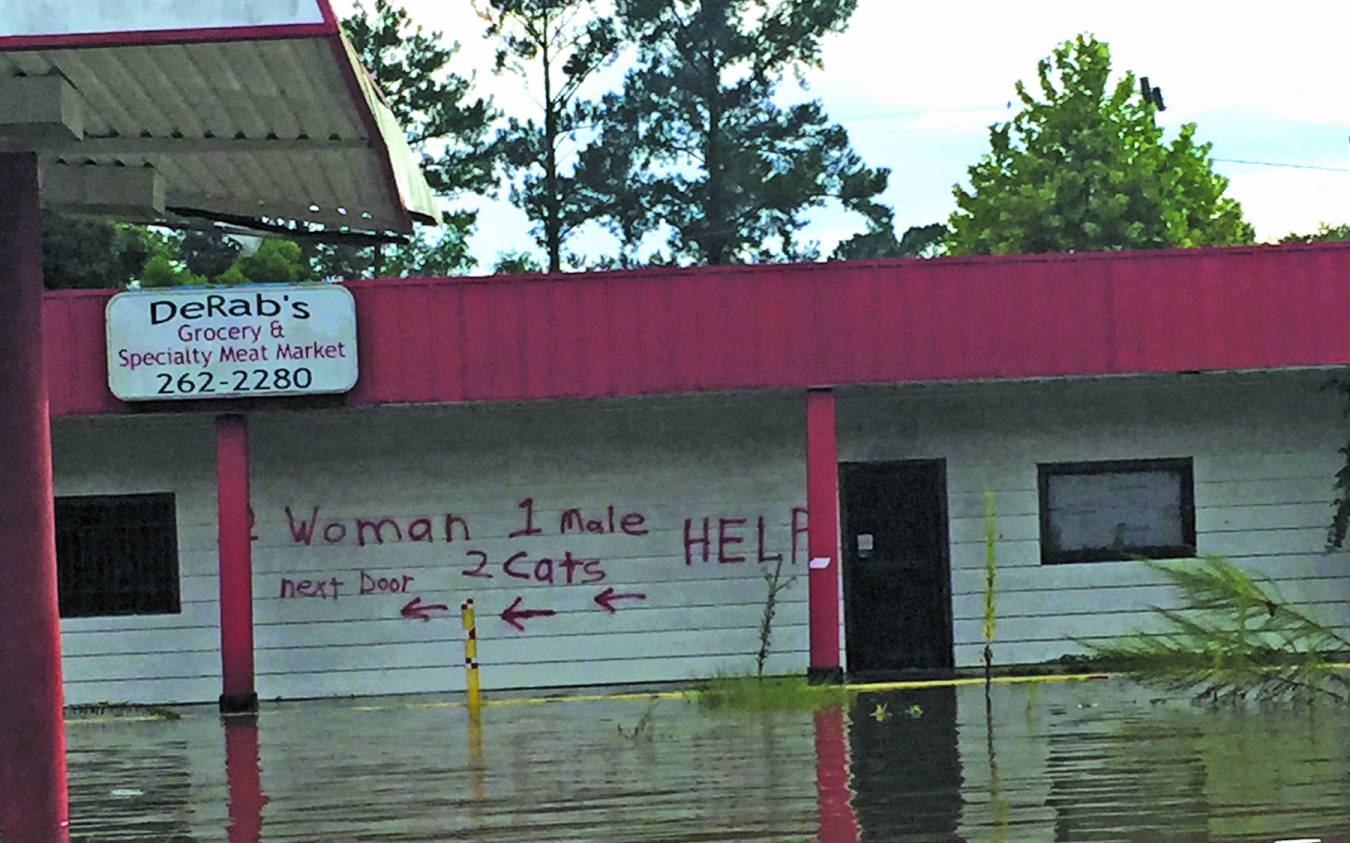 DeRab's
Grocery &
Specialty Meat Market
262-2280
2 Woman 1 male HELP
2 Cats
next Door